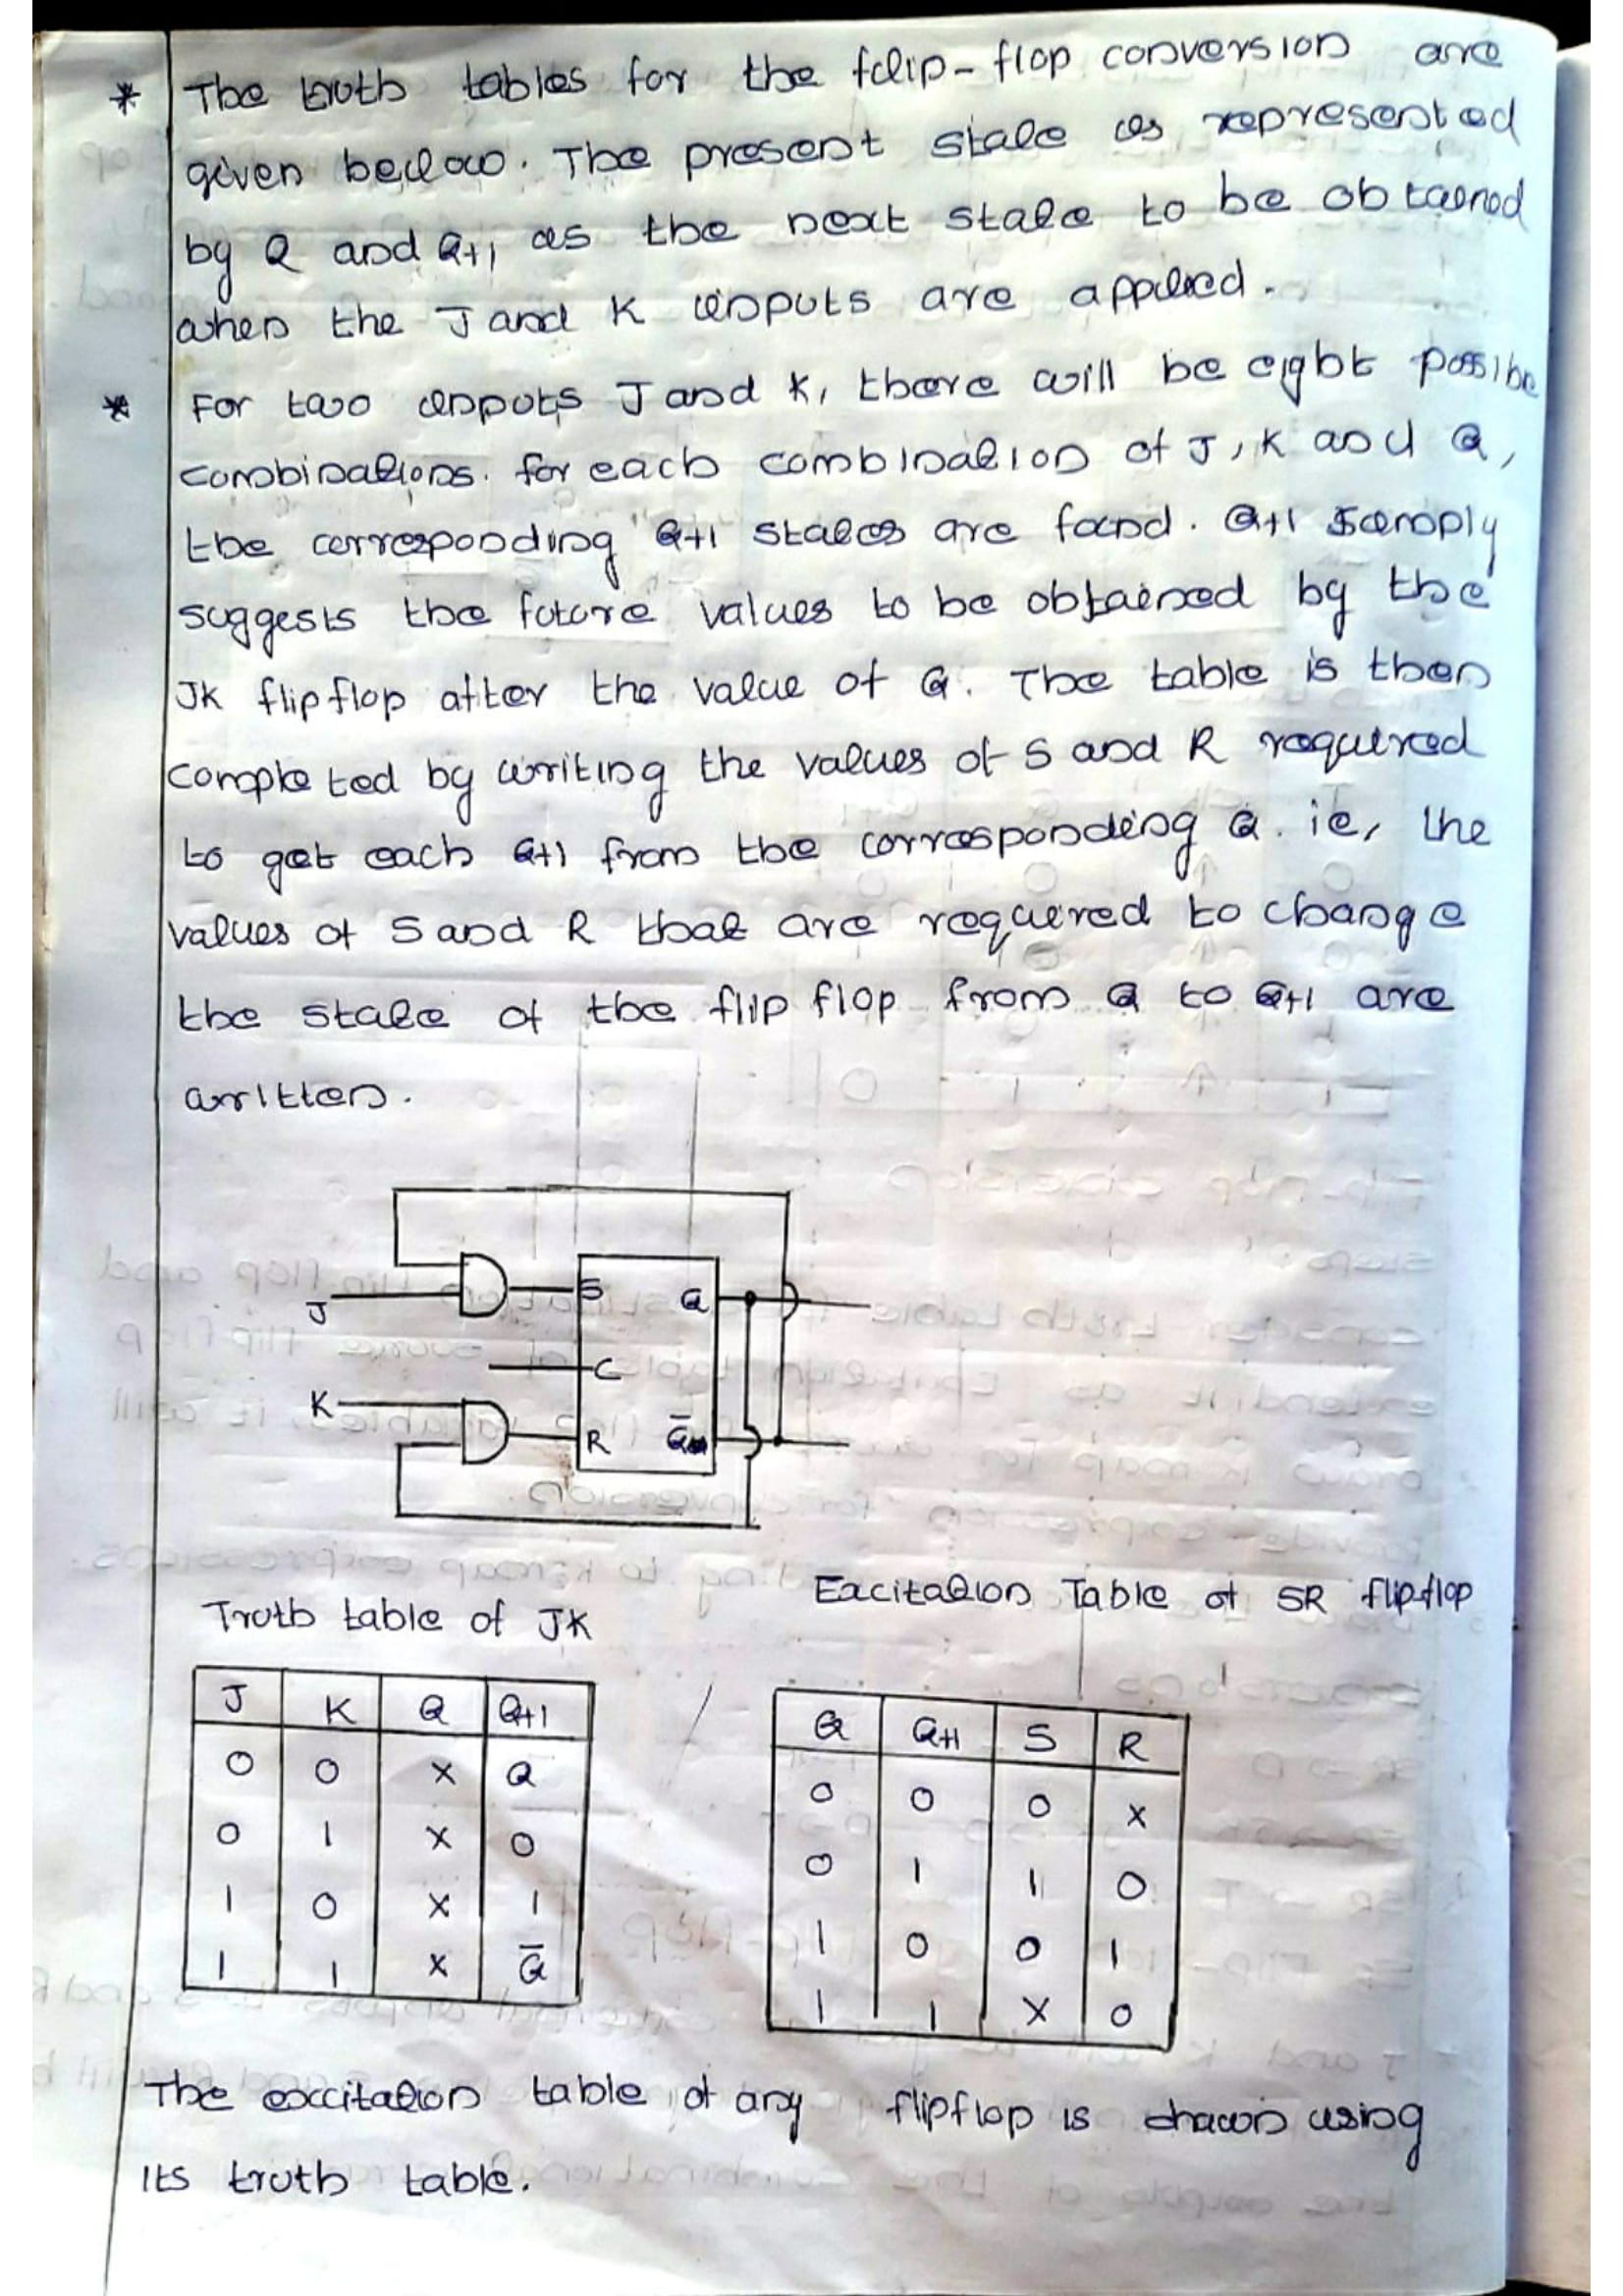 * The truth tables for the fclip-flop conversion are
given below. The present state is represented
by Q and Q+1 as the next state to be obtained
when the J and K inputs are applied.
* For two inputs J and K, there will be eight possibe
combinations. for each combination of J, K and Q,
the corresponding Q+1 states are found. Q+1 simply
suggests the future values to be obtained by the
JK flip flop after the value of Q. The table is then
completed by writing the values of S and R required
to get each Q+1 from the corresponding Q. ie, the
values of S and R that are required to change
the state of the flip flop from Q to Q+1 are
written.
J S Q
C
K R Q̅
Truth table of JK
J K Q Q+1
0 0 X Q
0 1 X 0
1 0 X 1
1 1 X Q̅
Excitation Table of SR flipflop
Q Q+1 S R
0 0 0 X
0 1 1 0
1 0 0 1
1 1 X 0
The excitation table of any flipflop is drawn using
its truth table.